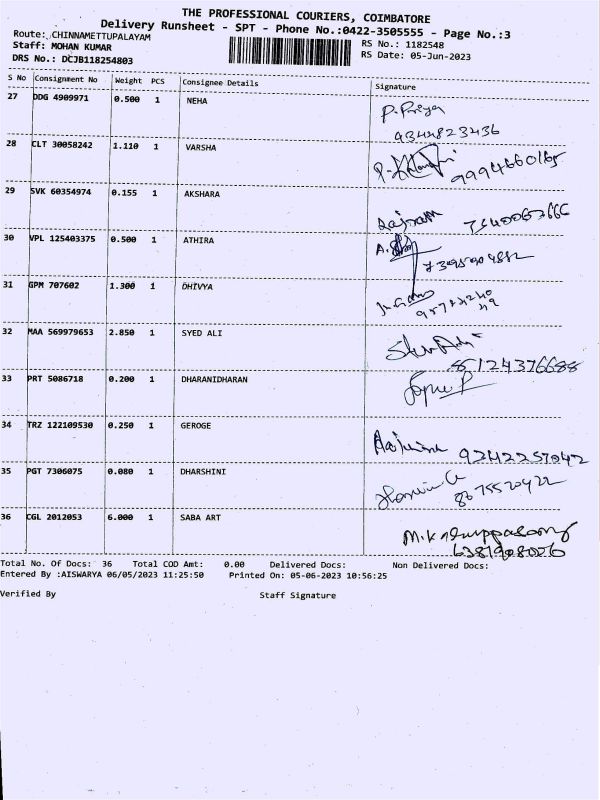 THE PROFESSIONAL COURIERS, COIMBATORE
Delivery Runsheet - SPT - Phone No.:0422-3505555 - Page No.:3
Route: CHINNAMETTUPALAYAM
Staff: MOHAN KUMAR
DRS No.: DCJB118254803
RS No.: 1182548
RS Date: 05-Jun-2023
S No Consignment No Weight PCS Consignee Details Signature
27 DDG 4909971 0.500 1 NEHA P. Priya
9344823436
28 CLT 30058242 1.110 1 VARSHA 9994660165
29 SVK 60354974 0.155 1 AKSHARA
30 VPL 125403375 0.500 1 ATHIRA
31 GPM 707602 1.300 1 DHIVYA
32 MAA 569979653 2.850 1 SYED ALI
33 PRT 5086718 0.200 1 DHARANIDHARAN
34 TRZ 122109530 0.250 1 GEROGE
35 PGT 7306075 0.080 1 DHARSHINI
36 CGL 2012053 6.000 1 SABA ART
Total No. Of Docs: 36 Total COD Amt: 0.00 Delivered Docs: Non Delivered Docs:
Entered By :AISWARYA 06/05/2023 11:25:50 Printed On: 05-06-2023 10:56:25
Verified By Staff Signature